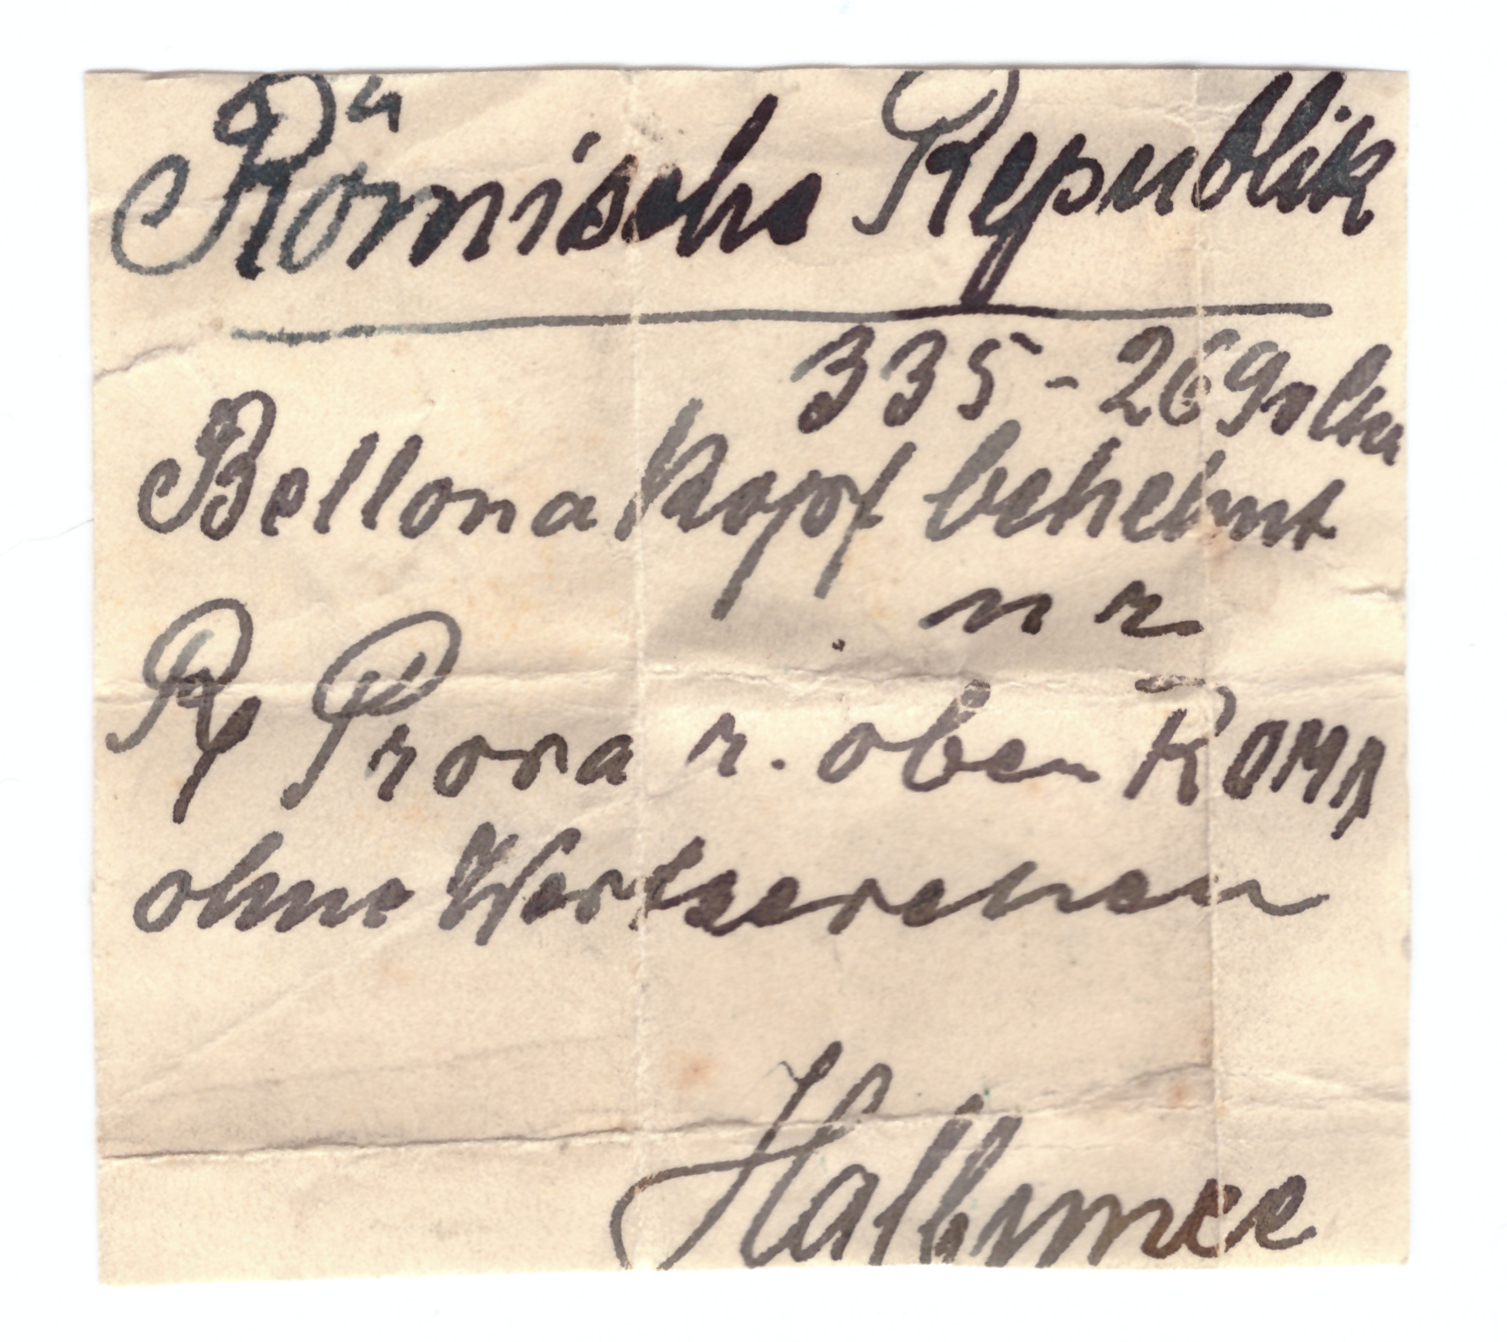 Römische Republik
335-269 v Chr
Bellona kopf behelmt
n r
Rf Prora r. oben ROMA
ohne Wertzeichen
Halbunce